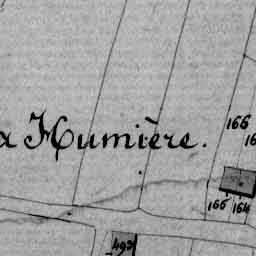 a Humière.
166
165
164
493